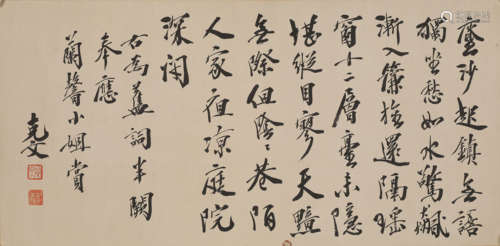 塵沙起鎮無語
獨坐愁如水驚颷
漸入簾旌還隔瑤
窗十二層臺未隱
堪縱目寥天黯
無際但陰〻巷陌
人家夜涼庭院
深閉
右為舊詞半闋
奉應
蘭馨小姐賞
克文